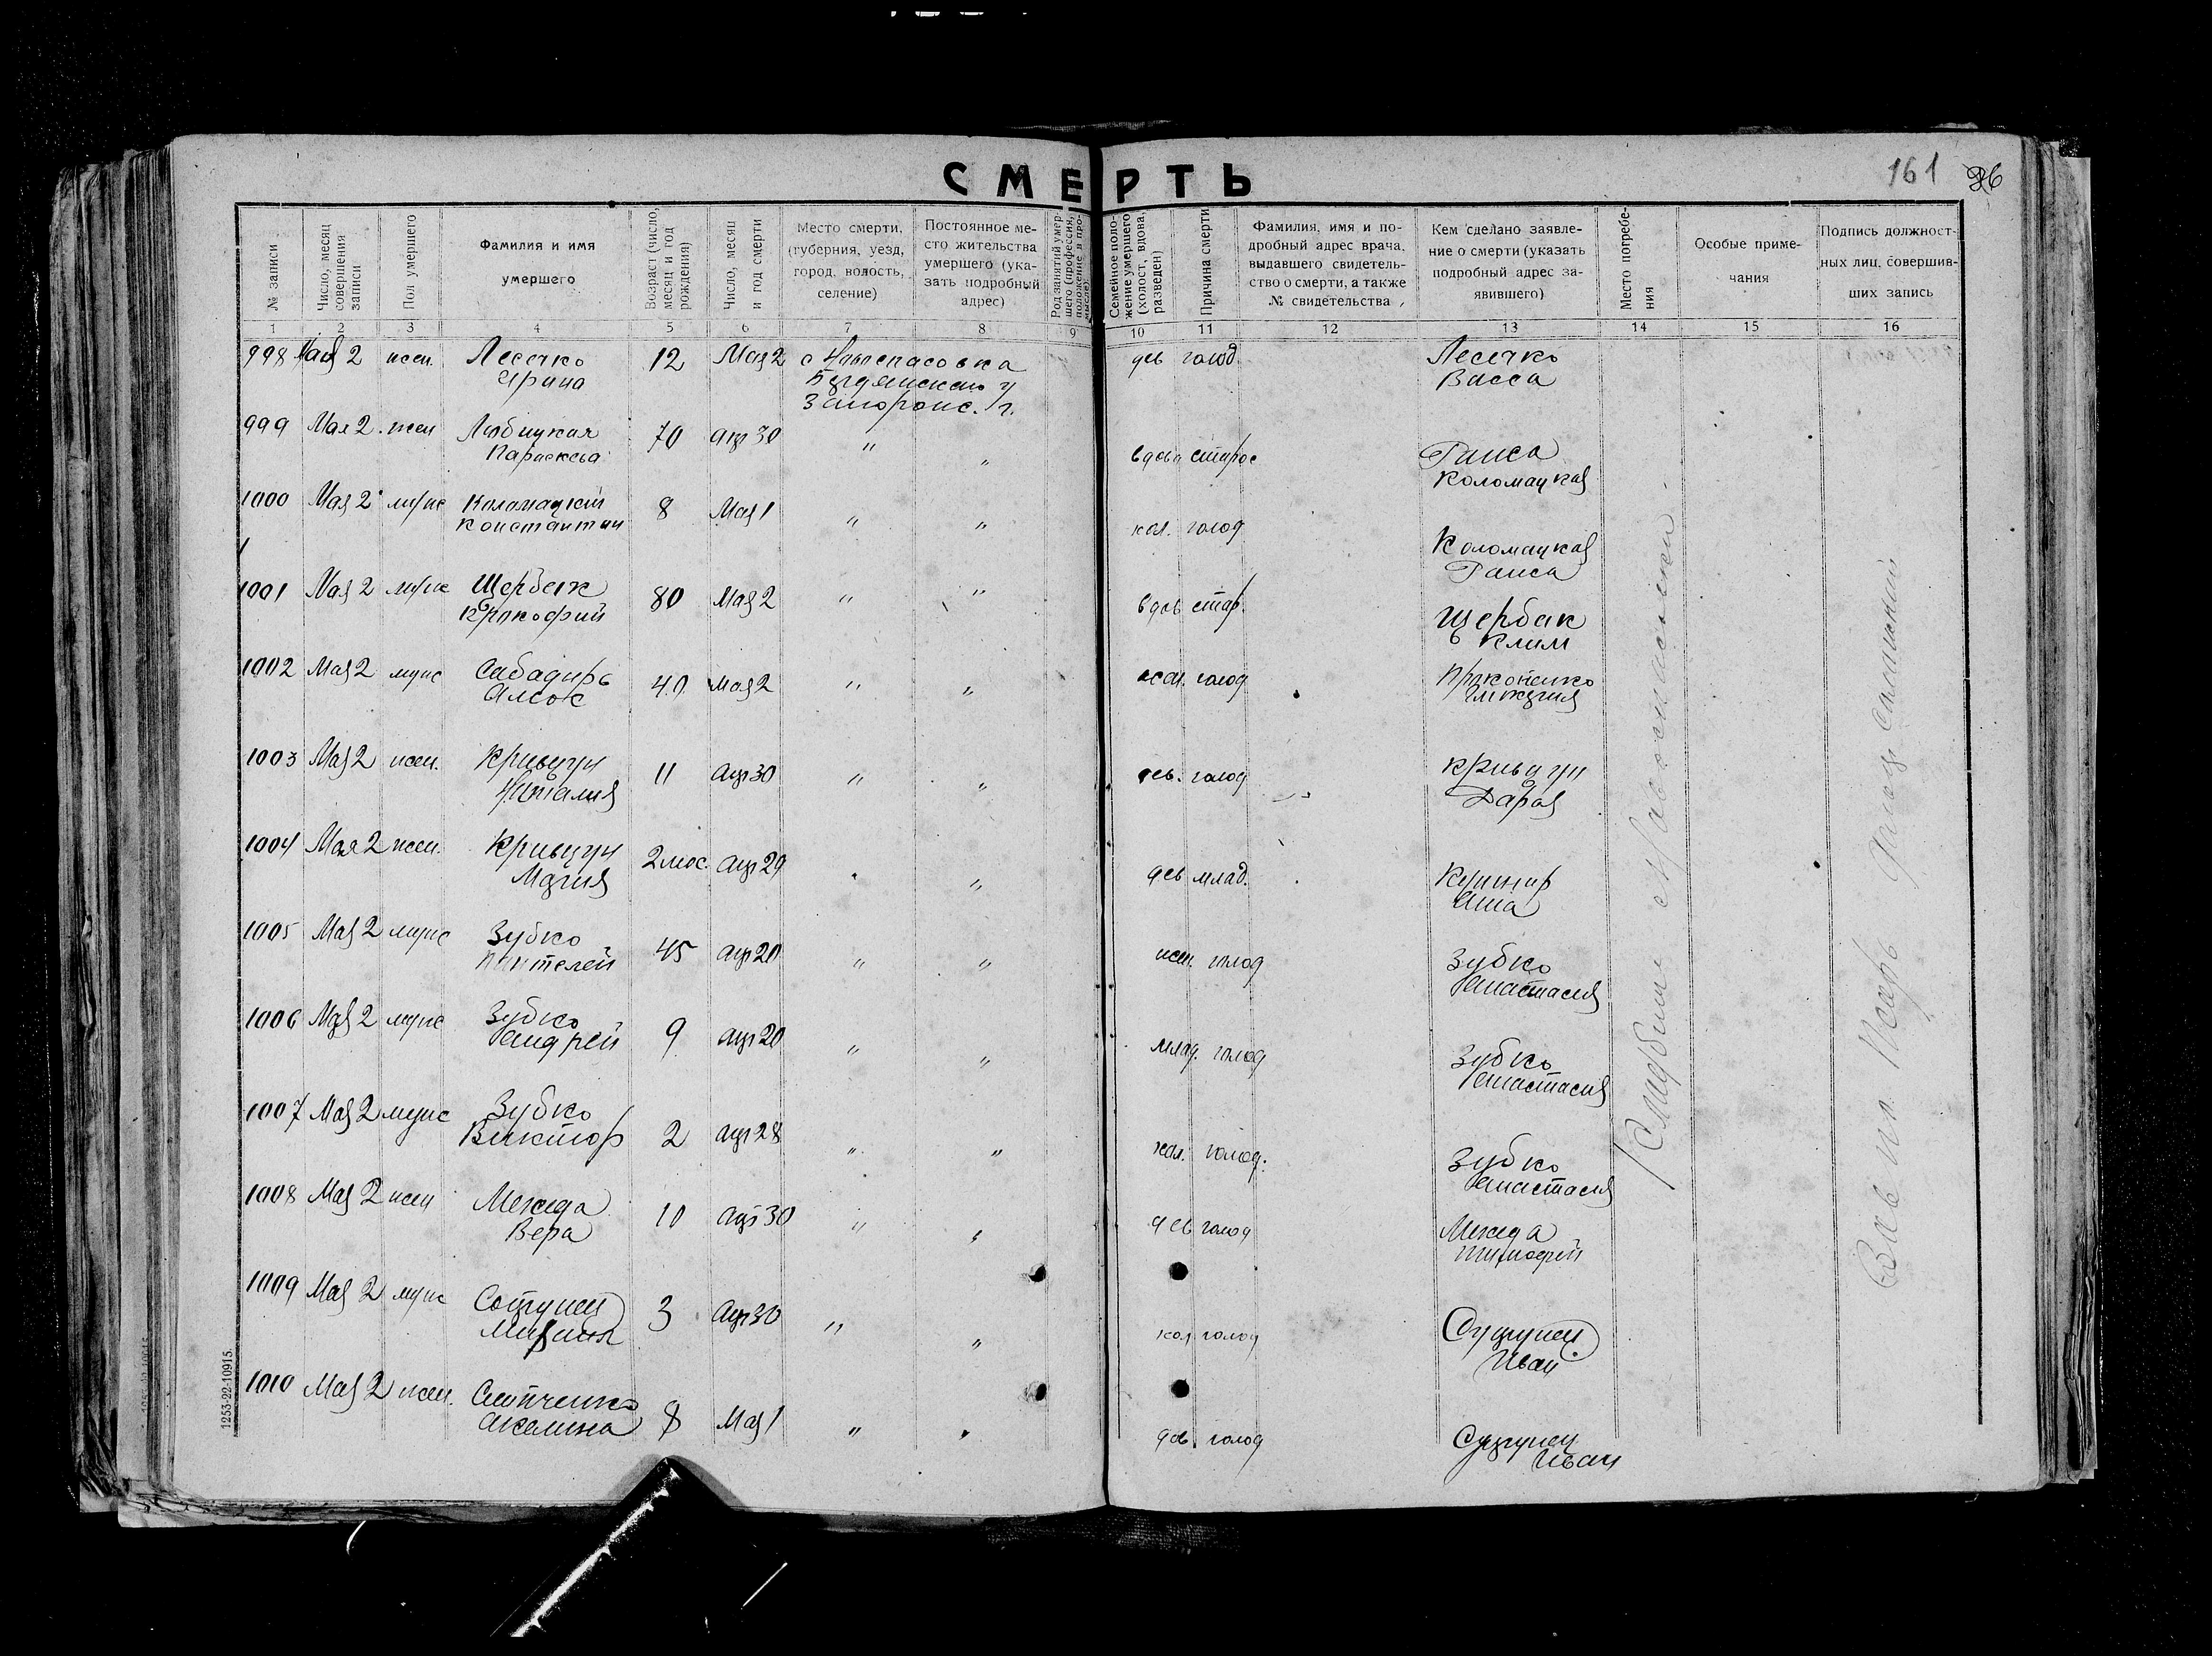 161 26
СМЕРТЬ
№ записи
Число, месяц совершения записи
Пол умершего
Фамилия и имя
умершего
Возраст (число, месяц и год рождения)
Число, месяц и год смерти
Место смерти,
(губерния, уезд,
город, волость,
селение)
Постоянное ме-
сто жительства
умершего (ука-
зать подробный
адрес)
Род занятий умер-
шего (профессия,
положение в про-
мысле)
Семейное поло-
жение умершего
(холост, вдова,
разведен)
Причина смерти
Фамилия, имя и по-
дробный адрес врача,
выдавшего свидетель-
ство о смерти, а также
№ свидетельства
Кем сделано заявле-
ние о смерти (указать
подробный адрес за-
явившего)
Место погребе-
ния
Особые приме-
чания
Подпись должност-
ных лиц, совершив-
ших запись
1 2 3 4 5 6 7 8 9 10 11 12 13 14 15 16
998 Мая 2 жен. Лесечко 12 Мая 2 с Новоспасовка дев голод. Лесечко
Ирина Бердянского у Васса
Запорож. г.
999 Мая 2. жен Любицкая 70 апр 30 " " вдова старос Раиса
Параскева Коломацкая
1000 Мая 2 муж Коломацкий 8 Мая 1 " " хол. голод Коломацкая
Константин Раиса
1001 Мая 2 муж Щербак 80 Мая 2 " " вдов стар. Щербак
Прокофий Клим
1002 Мая 2 муж 40 Мая 2 " " голод
1003 Мая 2 жен. Кривцун 11 апр 30 " " дев. голод Кривцун
Наталия Дарья
1004 Мая 2 жен. Кривцун 2 мес. апр 29 " дев млад. Кушнир
Мария
1005 Мая 2 муж Зубко 45 апр 20 " " жен. голод Зубко
Пантелей Анастасия
1006 Мая 2 муж Зубко 9 апр 20 " " млад. голод Зубко
Андрей Анастасия
1007 Мая 2 муж Зубко 2 апр 28 " " хол. голод. Зубко
Виктор Анастасия
1008 Мая 2 жен Межеда 10 апр 30 " " дев голод Межеда
Вера Тимофей
1009 Мая 2 муж 3 апр 30 " " хол голод
Иван
1010 Мая 2 жен. 8 Мая 1 " " дев. голод
Акелина Иван
Кладбище с Новоспасовки
1253-22-10915.